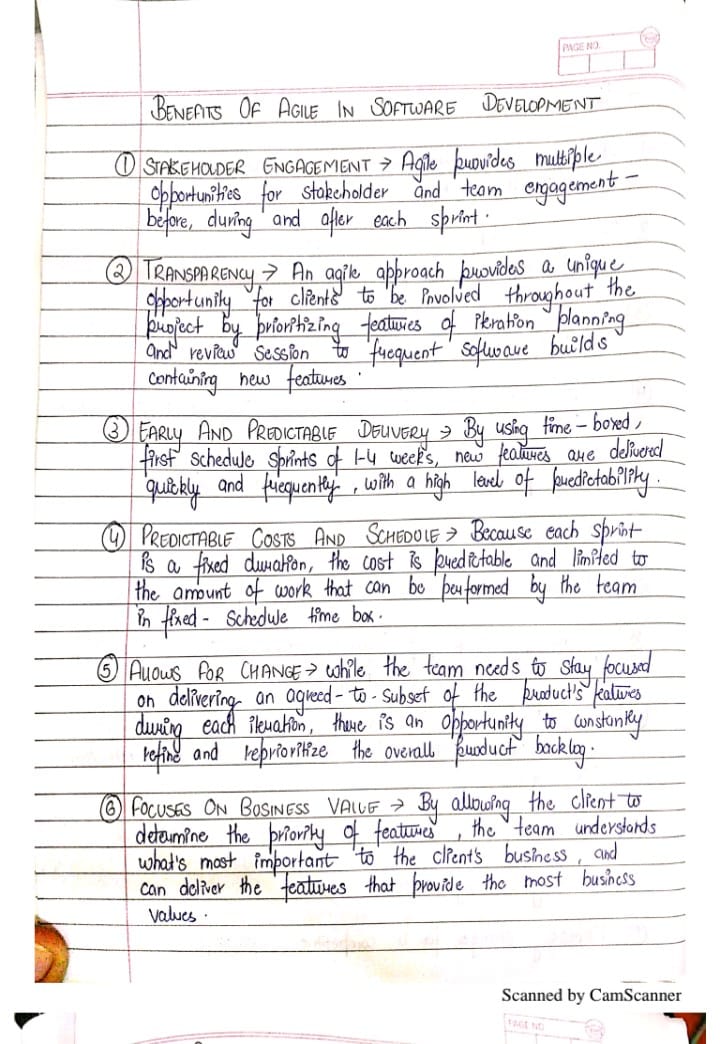 PAGE NO.
BENEFITS OF AGILE IN SOFTWARE DEVELOPMENT
① STAKEHOLDER ENGAGEMENT → Agile provides multiple
opportunities for stakeholder and team engagement -
before, during and after each sprint.
② TRANSPARENCY → An agile approach provides a unique
opportunity for clients to be involved throughout the
project by prioritizing features of iteration planning
and review session to frequent software builds
containing new features.
③ EARLY AND PREDICTABLE DELIVERY → By using time-boxed,
first schedule sprints of 1-4 weeks, new features are delivered
quickly and frequently, with a high level of predictability.
④ PREDICTABLE COSTS AND SCHEDULE → Because each sprint
is a fixed duration, the cost is predictable and limited to
the amount of work that can be performed by the team
in fixed - schedule time box.
⑤ ALLOWS FOR CHANGE → while the team needs to stay focused
on delivering an agreed-to-subset of the product's features
during each iteration, there is an opportunity to constantly
refine and reprioritize the overall product backlog.
⑥ FOCUSES ON BUSINESS VALUE → By allowing the client to
determine the priority of features, the team understands
what's most important to the client's business, and
can deliver the features that provide the most business
values.
Scanned by CamScanner
PAGE NO.